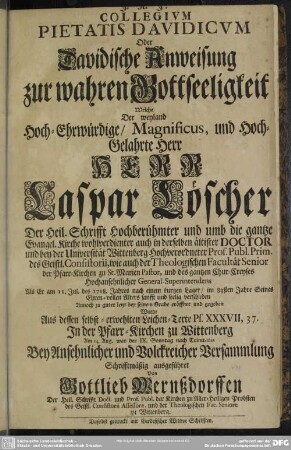 J. N. J.
COLLEGIVM
PIETATIS DAVIDICVM
Oder
Davidische Anweisung
zur wahren Gottseeligkeit
Welche
Der weyland
Hoch-Ehrwürdige/ Magnificus, und Hoch-
Gelahrte Herr
HERR
Caspar Löscher
Der Heil. Schrifft Hochberühmter und umb die gantze
Evangel. Kirche wohlverdienter auch in derselben ältester DOCTOR
und bey der Universität Wittenberg Hochverordneter Prof. Publ. Prim.
des Geistl. Consistorii, wie auch der Theologischen Facultät Senior
der Pfarr-Kirchen zu St. Marien Pastor, und des gantzen Chur-Creyses
Hochansehnlicher General-Superintendens
Als Er am 11. Jul. des 1718. Jahres nach einem kurtzen Lager/ im 83sten Jahre Seines
Ehren-vollen Alters sanfft und seelig verschieden
Annoch zu guter letzt bey Seinem Grabe eröffnet und gegeben
Wozu
Aus dessen selbst-erwehlten Leichen-Texte Ps. XXXVII, 37.
In der Pfarr-Kirchen zu Wittenberg
Am 14. Aug. war der IX. Sonntag nach Trinitatis
Bey Ansehnlicher und Volckreicher Versammlung
Schrifftmäßig ausgeführet
Von
Gottlieb Wernßdorffen
Der Heil. Schrifft Doct. und Prof. Publ. der Kirchen zu Aller-Heiligen Probsten
des Geistl. Consistorii Assessore, und der Theologischen Fac. Seniore
zu Wittenberg.
Daselbst gedruckt mit Gerdesischer Wittwe Schrifften.